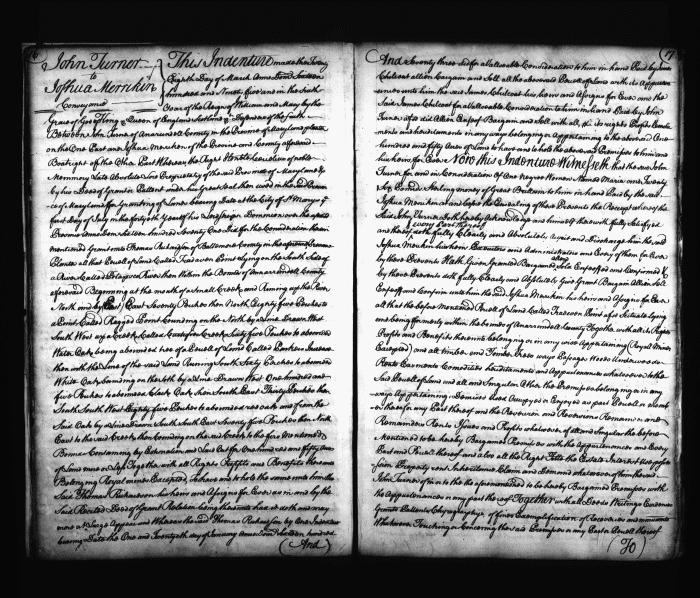 John Turner
to
Joshua Merriken
Conveyance
This Indenture made the Twenty
Eighth Day of March Anno Domi Sixteen
hundred and Ninety five and in the Sixth
Year of the Reign of William and Mary by the
Grace of God King & Queen of England Scotland & Defenders of the Faith
Between John Turner of Annarundell County in the Province of Maryland
on the One Part and Joshua Merriken of the Province and County aforesaid
of the Other Part Whereas the Right Honble Cecilius of noble
Memmory Late Absolute Lord Propriatary of the said Province of Maryland &c
by his Deed of Grant or Pattent under his Great Seal then used in the said Province
of Maryland for Granting of Lands bearing Date at the City of St Marys the
first Day of July in the fortyeth Year of his Dominion over the said
Province Anno Domi Sixteen hundred Seventy One Did for the Consideration therein
Mentioned Grant unto Thomas Richardson of Baltemore County in the aforesaid Province
all that Parcell of Land Called Tradhaven Point lying on the South Side of
a River Called Patapsco River then Within the Bounds of Annarundell County
aforesaid Beginning at the mouth of a Small Creek and Running up the River
North and by East Seventy Perches then North Eighty five Perches to
a Point Called Ragged Point bounding on the North by a Line Drawn West
South West up a Creek Called Creek Sixty five Perches to a bounded
White Oak being a bounded tree of a Parcell of Land Called Parkers
then with the Line of the said Land Running South Sixty Perches to a bounded
White Oak bounding on the South by a Line Drawn West One hundred and
five Perches to a bounded Oak then South East Thirty Perches then
South South West Eighty five Perches to a bounded red oak and from the
Said Oak by a Line Drawn South South East Seventy five Perches then North
East to the said Creek then bounding on the said Creek to the first Mentioned
Bounds Containing by Estimation and Laid out for One hundred and fifty Acres
of Land more or Less Together with all Rights Profitts and Benefitts thereunto
Belonging Royal mines Excepted To have and to hold the same unto him the
Said Thomas Richardson his heirs and Assigns for Ever as in and by the
Said Recited Deed of Grant Relation being thereunto had it doth and may
more at Large Appear And Whereas the said Thomas Richardson by One Indenture
bearing Date the One and Twentyeth day of January Anno Domi Sixteen hundred
(And)
17
And Seventy three Did for a Valuable Consideration to him in hand Paid by James
Chilcoat Bargain and Sell all the abovesaid Parcell of Land with its Appurten
ances unto him the said James Chilcoat his heirs and Assigns for Ever and the
Said James Chilcoat for a Valuable Consideration to him in hand Paid by John
Turner afsd did Alien Enfeof Bargain and Sell with all its rights Profits
ments and hereditaments in any ways belonging or Appertaining to the abovesaid One
hundred and fifty Acres of Land to have and to hold the abovesaid Premises to him and
his heirs for Ever Now this Indenture Witnesseth that the said John
Turner for and in Consideration Of One Negroe Woman Named Maria and Twenty
Six Pounds Sterling money of Great Brittain to him in hand Paid by the said
Joshua Merriken at and before the Ensealing of these Presents the Receipt whereof the
Said John Turner Doth hereby Acknowledge and himself therewith fully Satisfyed
and thereof
every Part thereof
doth fully Clearly and Absolutely Acquit and Discharge him the said
Joshua Merriken his heirs Executors and Administrators and Every of them for Ever
by these Presents Hath Given Granted Bargained
Sold Enfeoffed and Confirmed &
by these Presents doth fully Clearly and Absolutely Give Grant Bargain Alien Sell
Enfeoff and Confirm unto him the said Joshua Merriken his heirs and Assigns for Ever
all that the before Mentioned Parcell of Land Called Tradhaven Point afsd Scituate lying
and being formerly within the bounds of Annarundell County Together with all its Rights
Profits and Benefits thereunto belonging or in any wise Appertaining (Royal Mines
Excepted) and all timber and Timber Trees ways Passages Woods Underwoods
Rents Easments Comodities hereditaments and Appurtenances whatsoever to the
Said Parcell of Land all and Singular Other the Premises belonging or in any
ways Appertaining Demised Used Occupyed or Enjoyed as part Parcell or Member
thereof or any Part thereof and the Reversion and Reversions Remainder and
Remainders Rents Issues and Profits whatsoever of all and Singular the before
Mentioned to be hereby Bargained Premises with the Appurtenances and Every
Part and Parcell thereof and also all the Right Title the Estate Interest Use
Property Inheritance Claim and Demand whatsoever of him the said
John Turner of in or to the the aforementioned to be hereby Bargained Premises with
the Appurtenances or any part thereof Together with all Deeds Writeings Evidences
Grants Pattents Exemplification of Recoveries and muniments
Whatsoever Touching or Concerning the said Premises or any Part or Parcell thereof
(To)